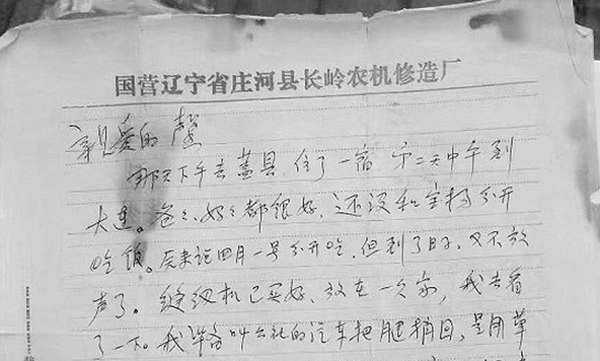 国营辽宁省庄河县长岭农机修造厂
亲爱的慧
那天下午去盖县,住了一宿 第二天中午到
大连。爸爸、妈妈都很好,还没和宝杨分开
吃饭。后来说四月一号分开吃,但到了日子,又不放
声了。缝纫机已买好,放在一久家,我去看
了一下。我准备叫公社的汽车把它捎回,是用草